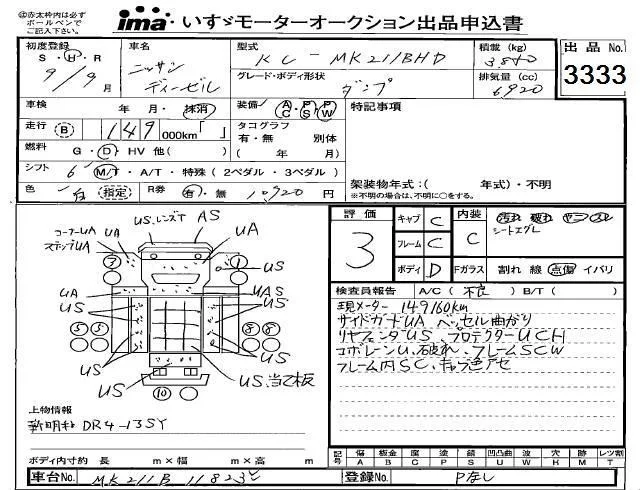 ㊟赤太枠内は必ず
ボールペンで
ご記入下さい。
ima・いすゞモーターオークション出品申込書
初度登録
S・H・R
9/9月
車名
ニッサン
ディーゼル
型式
KC-MK211BHD
積載(kg)
3840
出品No.
3333
グレード・ボディ形状
ダンプ
排気量(cc)
6920
車検 年 月・抹消
装備 AC PS PW
特記事項
走行 B 149 000km「 」
タコグラフ
有・無 別体
( 年 月)
燃料 G・D・HV 他( )
シフト 6 M/T・A/T・特殊(2ペダル・3ペダル)
色 白 指定 R券 有・無 10,920円
架装物年式:( 年式)・不明
※不明の場合は、不明に○をする。
US.レンズT AS
コーナーUA UA UA
ステップUA
7 1
UA UAS
US US
5 5 8 8
US US
US US
10 US.当て板
評価 3
キャブ C
フレーム C
ボディ D
内装 C
汚れ 破れ ヤニ スレ
シートエグレ
Fガラス 割れ 線 点傷 イバリ
検査員報告 A/C(不良) B/T( )
現メーター 149160km
サイドガードUA ベッセル曲がり
リヤフェンダUS、プロテクターUCH
コボレーンU、破れ、フレームSCW
フレーム内SC、キャブ色アセ
上物情報
新明和 DR4-13SY
ボディ内寸約 長 m×幅 m×高 m
記号 傷A 板金B 腐C 塗P 錆S 凹凸曲U 波W 穴H 跡M レツ割T
車台No. MK211B 11823
登録No. Pなし